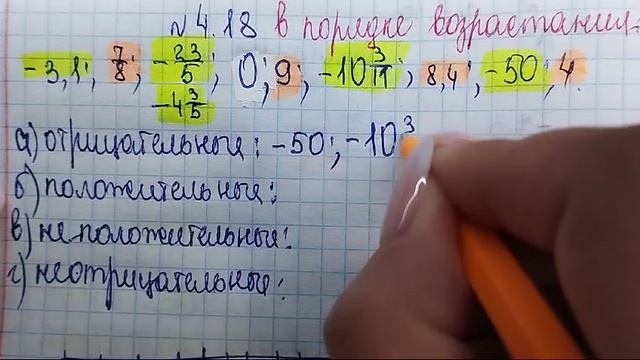 №4.18 в порядке возрастания.
-3,1; 7/8; -23/5; 0; 9; -10 3/11; 8,4; -50; 4.
-4 3/5
а) отрицательные: -50; -10 3
б) положительные:
в) неположительные:
г) неотрицательные: